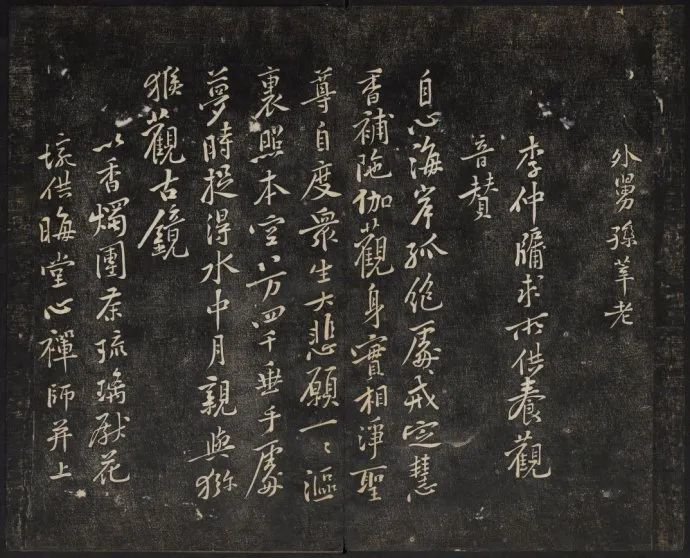 外舅孫莘老
李仲牖求所供養觀
音賛
自心海岸孤絶處戒定慧
香補陁伽觀身實相淨聖
尊自度衆生大悲願一〻漚
裏照本空八万四千垂手處
夢時捉得水中月親與猕
猴觀古鏡
以香燭團茶琉璃獻花
垸供晦堂心禪師并上